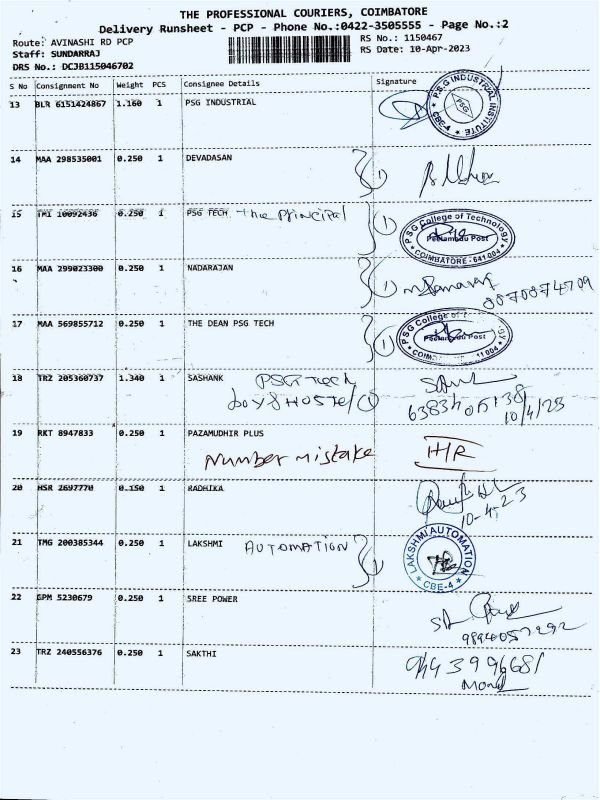 THE PROFESSIONAL COURIERS, COIMBATORE
Delivery Runsheet - PCP - Phone No.:0422-3505555 - Page No.:2
Route: AVINASHI RD PCP RS No.: 1150467
Staff: SUNDARRAJ RS Date: 10-Apr-2023
DRS No.: DCJB115046702
S No Consignment No Weight PCS Consignee Details Signature
13 BLR 6151424867 1.160 1 PSG INDUSTRIAL
P.S.G INDUSTRIAL INSTITUTE
PSG
CBE-4
14 MAA 298535001 0.250 1 DEVADASAN 1
15 TMI 10092436 0.250 1 PSG TECH The principal 1
PSG College of Technology
Peelamedu Post
COIMBATORE - 641 004
16 MAA 299023300 0.250 1 NADARAJAN 1
17 MAA 569855712 0.250 1 THE DEAN PSG TECH 1
PSG College of
Peelamedu Post
18 TRZ 205360737 1.340 1 SASHANK PSG Tech
boys Hostel 1
10/4/23
19 RKT 8947833 0.250 1 PAZAMUDHIR PLUS
Number mistake H/R
20 HSR 2697770 0.150 1 RADHIKA
10-4-23
21 TMG 200385344 0.250 1 LAKSHMI AUTOMATION 1
LAKSHMI AUTOMATION
CBE-4
22 GPM 5230679 0.250 1 SREE POWER
9894057292
23 TRZ 240556376 0.250 1 SAKTHI